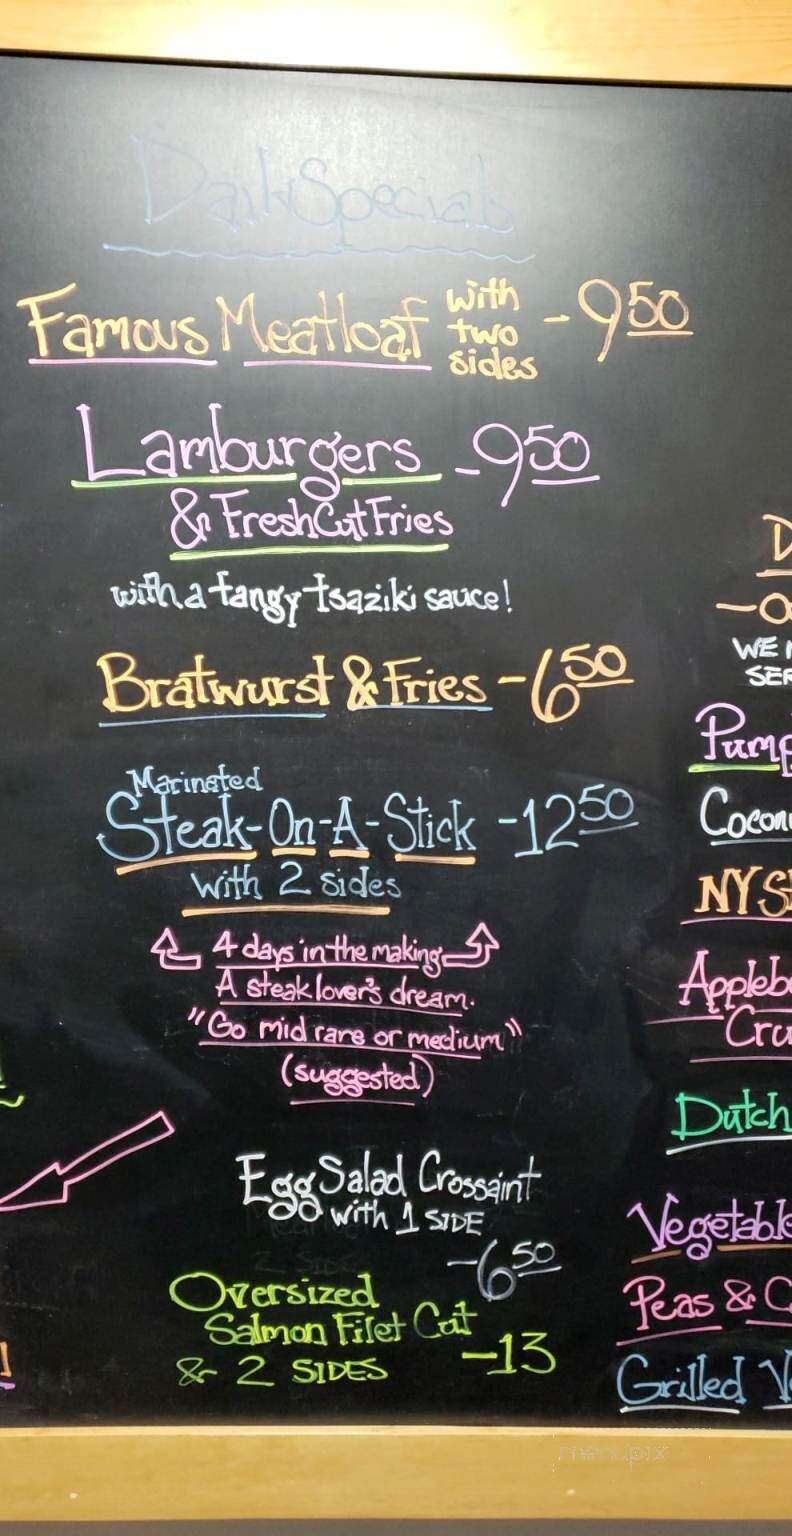 Daily Specials
Famous Meatloaf with two sides - 9 50
Lamburgers - 9 50
& Fresh Cut Fries
with a tangy tsaziki sauce!
Bratwurst & Fries - 6 50
Marinated
Steak-On-A-Stick - 12 50
with 2 sides
4 days in the making
A steak lover's dream.
"Go mid rare or medium"
(suggested)
Egg Salad Crossaint
with 1 SIDE
- 6 50
Oversized
Salmon Filet Cut
& 2 SIDES - 13
WE
SER
Pump
Cocon
NY St
Appleb
Cru
Dutch
Vegetable
Peas & C
Grilled V
menupix